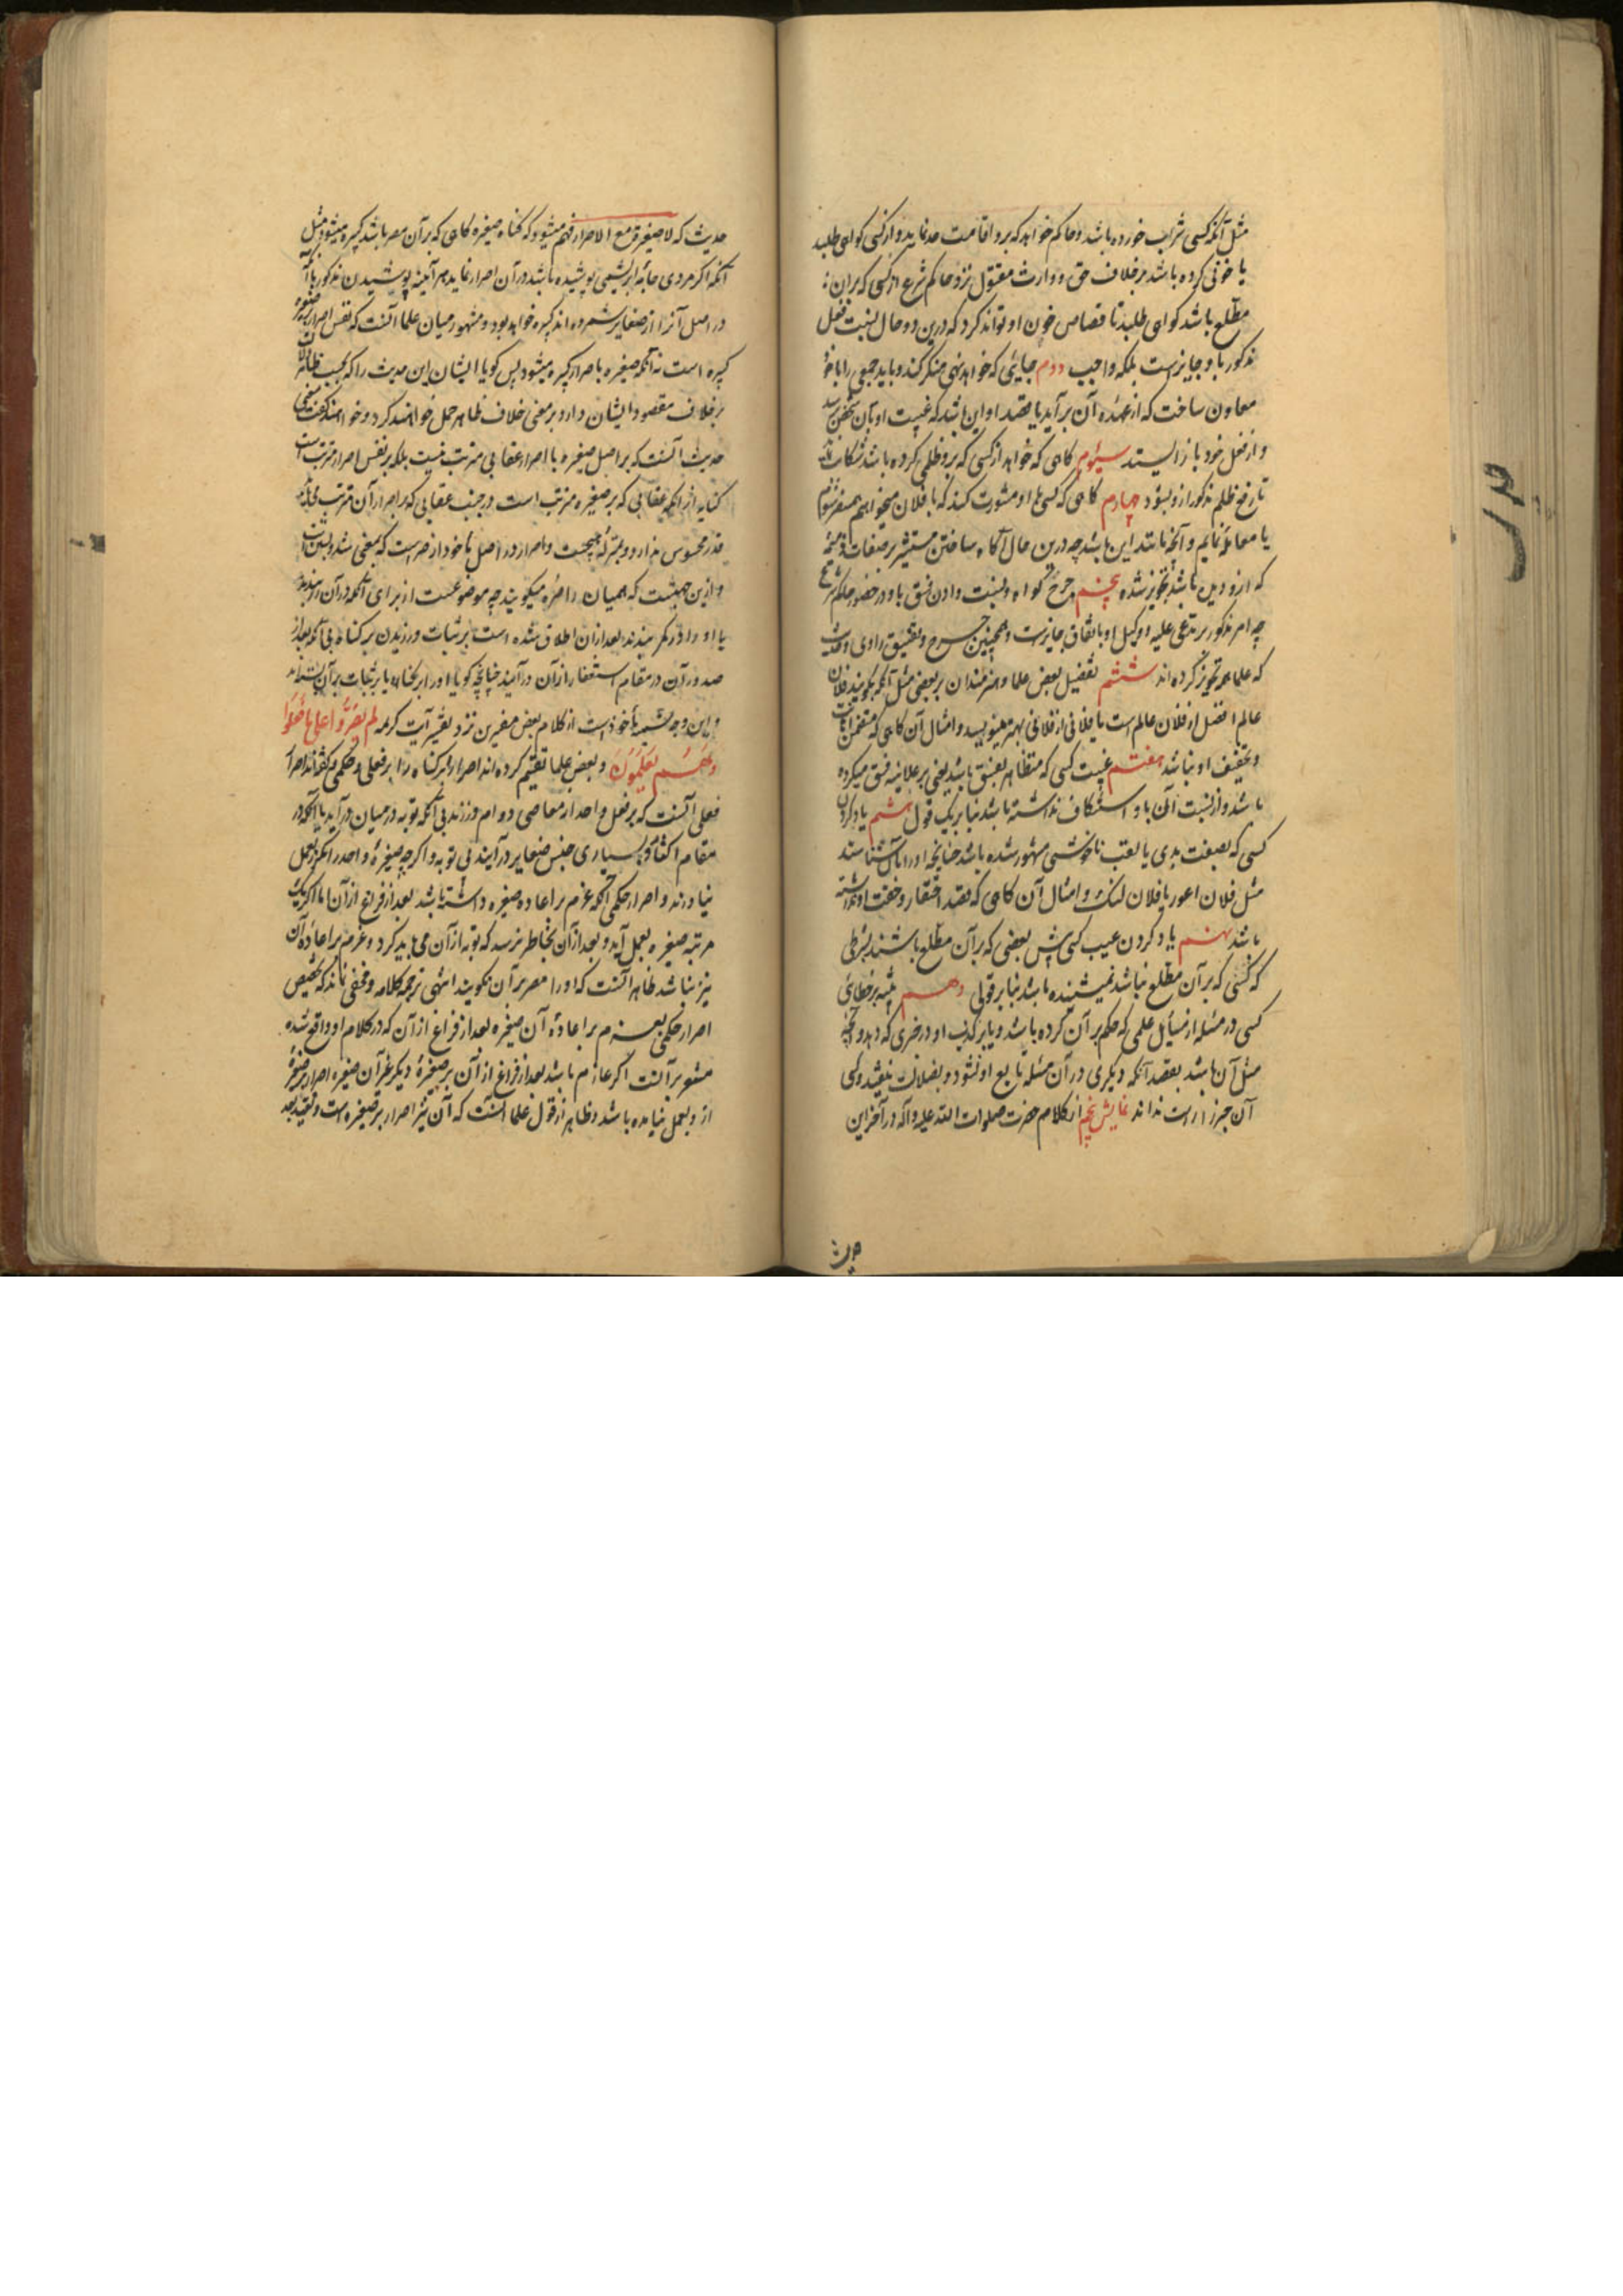 مثل آنکه کسی شراب خورده باشد و حاکم خواهد که برو اقامت حد نماید و از کسی کواهی طلبد
یا خونی کرده باشد بر خلاف حق و وارث مقتول نزد حاکم شرع از کسی که بران
مطلع باشد کواهی طلبد تا قصاص خون او تواند کرد که درین دو حال نسبت فعل
مذکور باو جایزست بلکه واجب دوم جایئی که خواهد نهی منکر کند و باید جمعی را با خود
معاون ساخت که از عهده آن برآید یا قصد او این باشد که غیبت او بآن شخص رسد
و از فعل خود باز ایستد سیوم کاهی که خواهد از کسی که برو ظلمی کرده باشد شکایت
تا رفع ظلم مذکور ازو بشود چهارم کاهی که کسی با او مشورت کند که با فلان میخواهم همسفر شوم
یا معامله نمایم و آنچه مانند این باشد چه درین حال آکاه ساختن مستشیر بر صفات ذمیمه
که ازو دیده باشد تجویز شده پنجم جرح کواه و نسبت دادن فسق باو در حضور حاکم شرع
چه امر مذکور بر مدعی علیه او وکیل او باتفاق جایزست و همچنین جرح و تفسیق راوی حدیث
که علما همه تجویز کرده اند ششم تفضیل بعض علما و هنرمندان بر بعضی مثل آنکه بکویند فلان
عالم افضل از فلان عالم است یا فلانی از فلانی بهتر مینویسد و امثال آن کاهی که متضمن اهانت
و تخفیف او نباشد هفتم غیبت کسی که متظاهر بفسق باشد یعنی بر علانیه فسق میکرده
باشد و از نسبت آن باو استنکاف نداشته باشد بنا بر یک قول هشتم یاد کردن
کسی که بصفت بدی یا لقب ناخوشی مشهور شده باشد چنانچه او را بآن شناسند
مثل فلان اعور یا فلان لنک و امثال آن کاهی که قصد احتقار و خفت او نداشته
باشد نهم یاد کردن عیب کسی پیش بعضی که بر آن مطلع باشند بشرطی
که کسی که بر آن مطلع نباشد نمیشنیده باشد بنا بر قولی دهم تنبیه بر خطائی
کسی در مسئله از مسایل علمی که حکم بر آن کرده باشد و یا بر کذب او در خبری که دهد و آنچه
مثل آن باشد بقصد آنکه دیکری در آن مسئله تابع او نشود و بضلالت نیفتد و کسی
آن خبر را راست نداند نمایش پنجم از کلام حضرت صلوات الله علیه و آله در آخر این
حدیث که لا صغیرة مع الاصرار فهم میشود که کناه صغیره کاهی که بر آن مصر باشد کبیره میشود مثل
آنکه اکر مردی جامه ابریشمی پوشیده باشد و در آن اصرار نماید هر آینه پوشیدن مذکور با آنکه
در اصل آنرا از صغایر شمرده اند کبیره خواهد بود و مشهور میان علما آنست که نفس اصرار بر صغیره
کبیره است نه آنکه صغیره باصرار کبیره میشود پس کویا ایشان این حدیث را که بحسب ظاهر
بر خلاف مقصود ایشان دارد بر معنی خلاف ظاهر حمل خواهند کرد و خواهند کفت معنی
حدیث آنست که بر اصل صغیره با اصرار عقابی مترتب نیست بلکه بر نفس اصرار مترتب است
کنایه از آنکه عقابی که بر صغیره مترتب است در جنب عقابی که بر اصرار آن مترتب میشود
قدر محسوس ندارد و بمنزله هیچست و اصرار در اصل ماخوذ از صر است که بمعنی شد و بستن است
و ازین جهتست که همیان را صره میکویند چه موضوعست از برای آنکه در آن زر بندند
یا او را در کمر بندند بعد از آن اطلاق شده است بر ثبات ورزیدن بر کناه بی آنکه بعد از
صدور آن در مقام استغفار از آن درآیند چنانچه کویا او را بکناه یا بر ثبات بر آن بسته اند
و این وجه تسمیه ماخوذست از کلام بعض مفسرین نزد تفسیر آیت کریمه لم یصروا علی ما فعلوا
و هم یعلمون و بعض علما تقسیم کرده اند اصرار بر کناه را بر فعلی و حکمی و کفته اند اصرار
فعلی آنست که بر فعل واحد از معاصی دوام ورزند بی آنکه توبه در میان درآید یا آنکه در
مقام اکثار و بسیاری جنس صغایر درآیند بی توبه و اکر چه صغیره واحد را مکرر بعمل
نیاورند و اصرار حکمی آنکه عزم بر اعاده صغیره داشته باشد بعد از فراغ از آن اما اکر یک
مرتبه صغیره بعمل آید و بعد از آن بخاطر نرسد که توبه از آن می باید کرد و عزم بر اعاده آن
نیز نباشد ظاهر آنست که او را مصر بر آن نکویند انتهی ترجمه کلامه و مخفی نماند که تخصیص
اصرار حکمی بعزم بر اعاده آن صغیره بعد از فراغ از آن که در کلام او واقع شده
مشعر بر آنست اکر عازم باشد بعد از فراغ از آن بر صغیره دیکر غیر آن صغیره اصرار بر صغیره
ازو بعمل نیامده باشد و ظاهر از قول علما آنست که آن نیز اصرار بر صغیره است و تقیید بعد